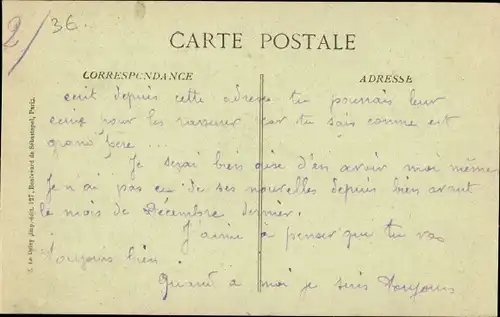 2/36.
CARTE POSTALE
CORRESPONDANCE
ADRESSE
écrit depuis cette adresse tu pourrais leur
pour les rassurer car tu sais comme est
grand'père ...
Je serai bien aise d'en avoir moi même
Je n'ai pas eu de ses nouvelles depuis bien avant
le mois de Décembre dernier.
J'aime à penser que tu vas
toujours bien.
Quant à moi je suis toujours
Imp.-édit., 127, Boulevard de Sébastopol, Paris.